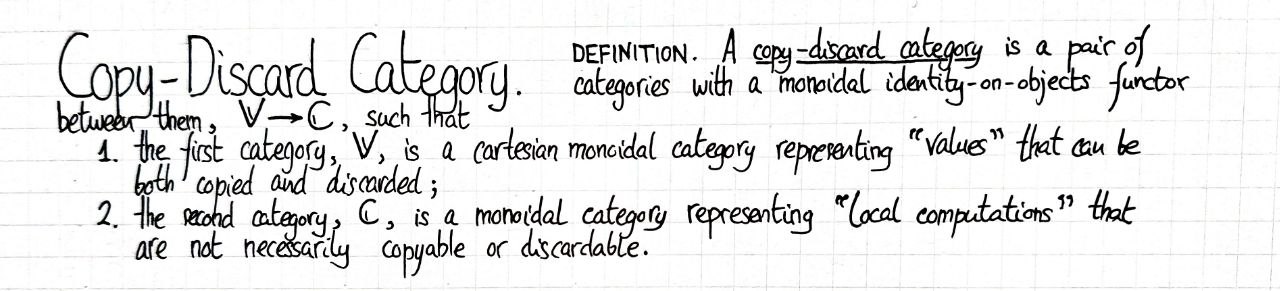 Copy-Discard Category.
DEFINITION. A copy-discard category is a pair of
categories with a monoidal identity-on-objects functor
between them, 𝕍→ℂ, such that
1. the first category, 𝕍, is a cartesian monoidal category representing "values" that can be
both copied and discarded;
2. the second category, ℂ, is a monoidal category representing "local computations" that
are not necessarily copyable or discardable.